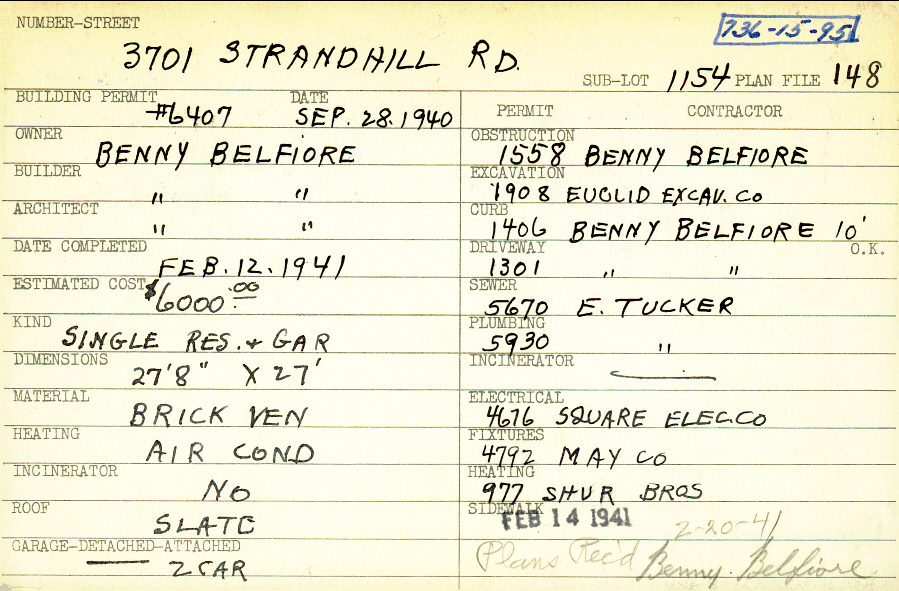 NUMBER-STREET
736-15-95
3701 STRANDHILL RD.
SUB-LOT 1154 PLAN FILE 148
BUILDING PERMIT DATE
#6407 SEP. 28.1940
OWNER
BENNY BELFIORE
BUILDER
" "
ARCHITECT
" "
DATE COMPLETED
FEB. 12. 1941
ESTIMATED COST
$6000.00
KIND
SINGLE RES. & GAR
DIMENSIONS
27'8" X 27'
MATERIAL
BRICK VEN
HEATING
AIR COND
INCINERATOR
NO
ROOF
SLATE
GARAGE-DETACHED-ATTACHED
2 CAR
PERMIT CONTRACTOR
OBSTRUCTION
1558 BENNY BELFIORE
EXCAVATION
1908 EUCLID EXCAV. CO
CURB
1406 BENNY BELFIORE 10'
DRIVEWAY O.K.
1301 " "
SEWER
5670 E. TUCKER
PLUMBING
5930 "
INCINERATOR
ELECTRICAL
4676 SQUARE ELEC. CO
FIXTURES
4792 MAY CO
HEATING
977 SHUR BROS
SIDEWALK
FEB 14 1941
2-20-41
Plans Rec'd Benny. Belfiore